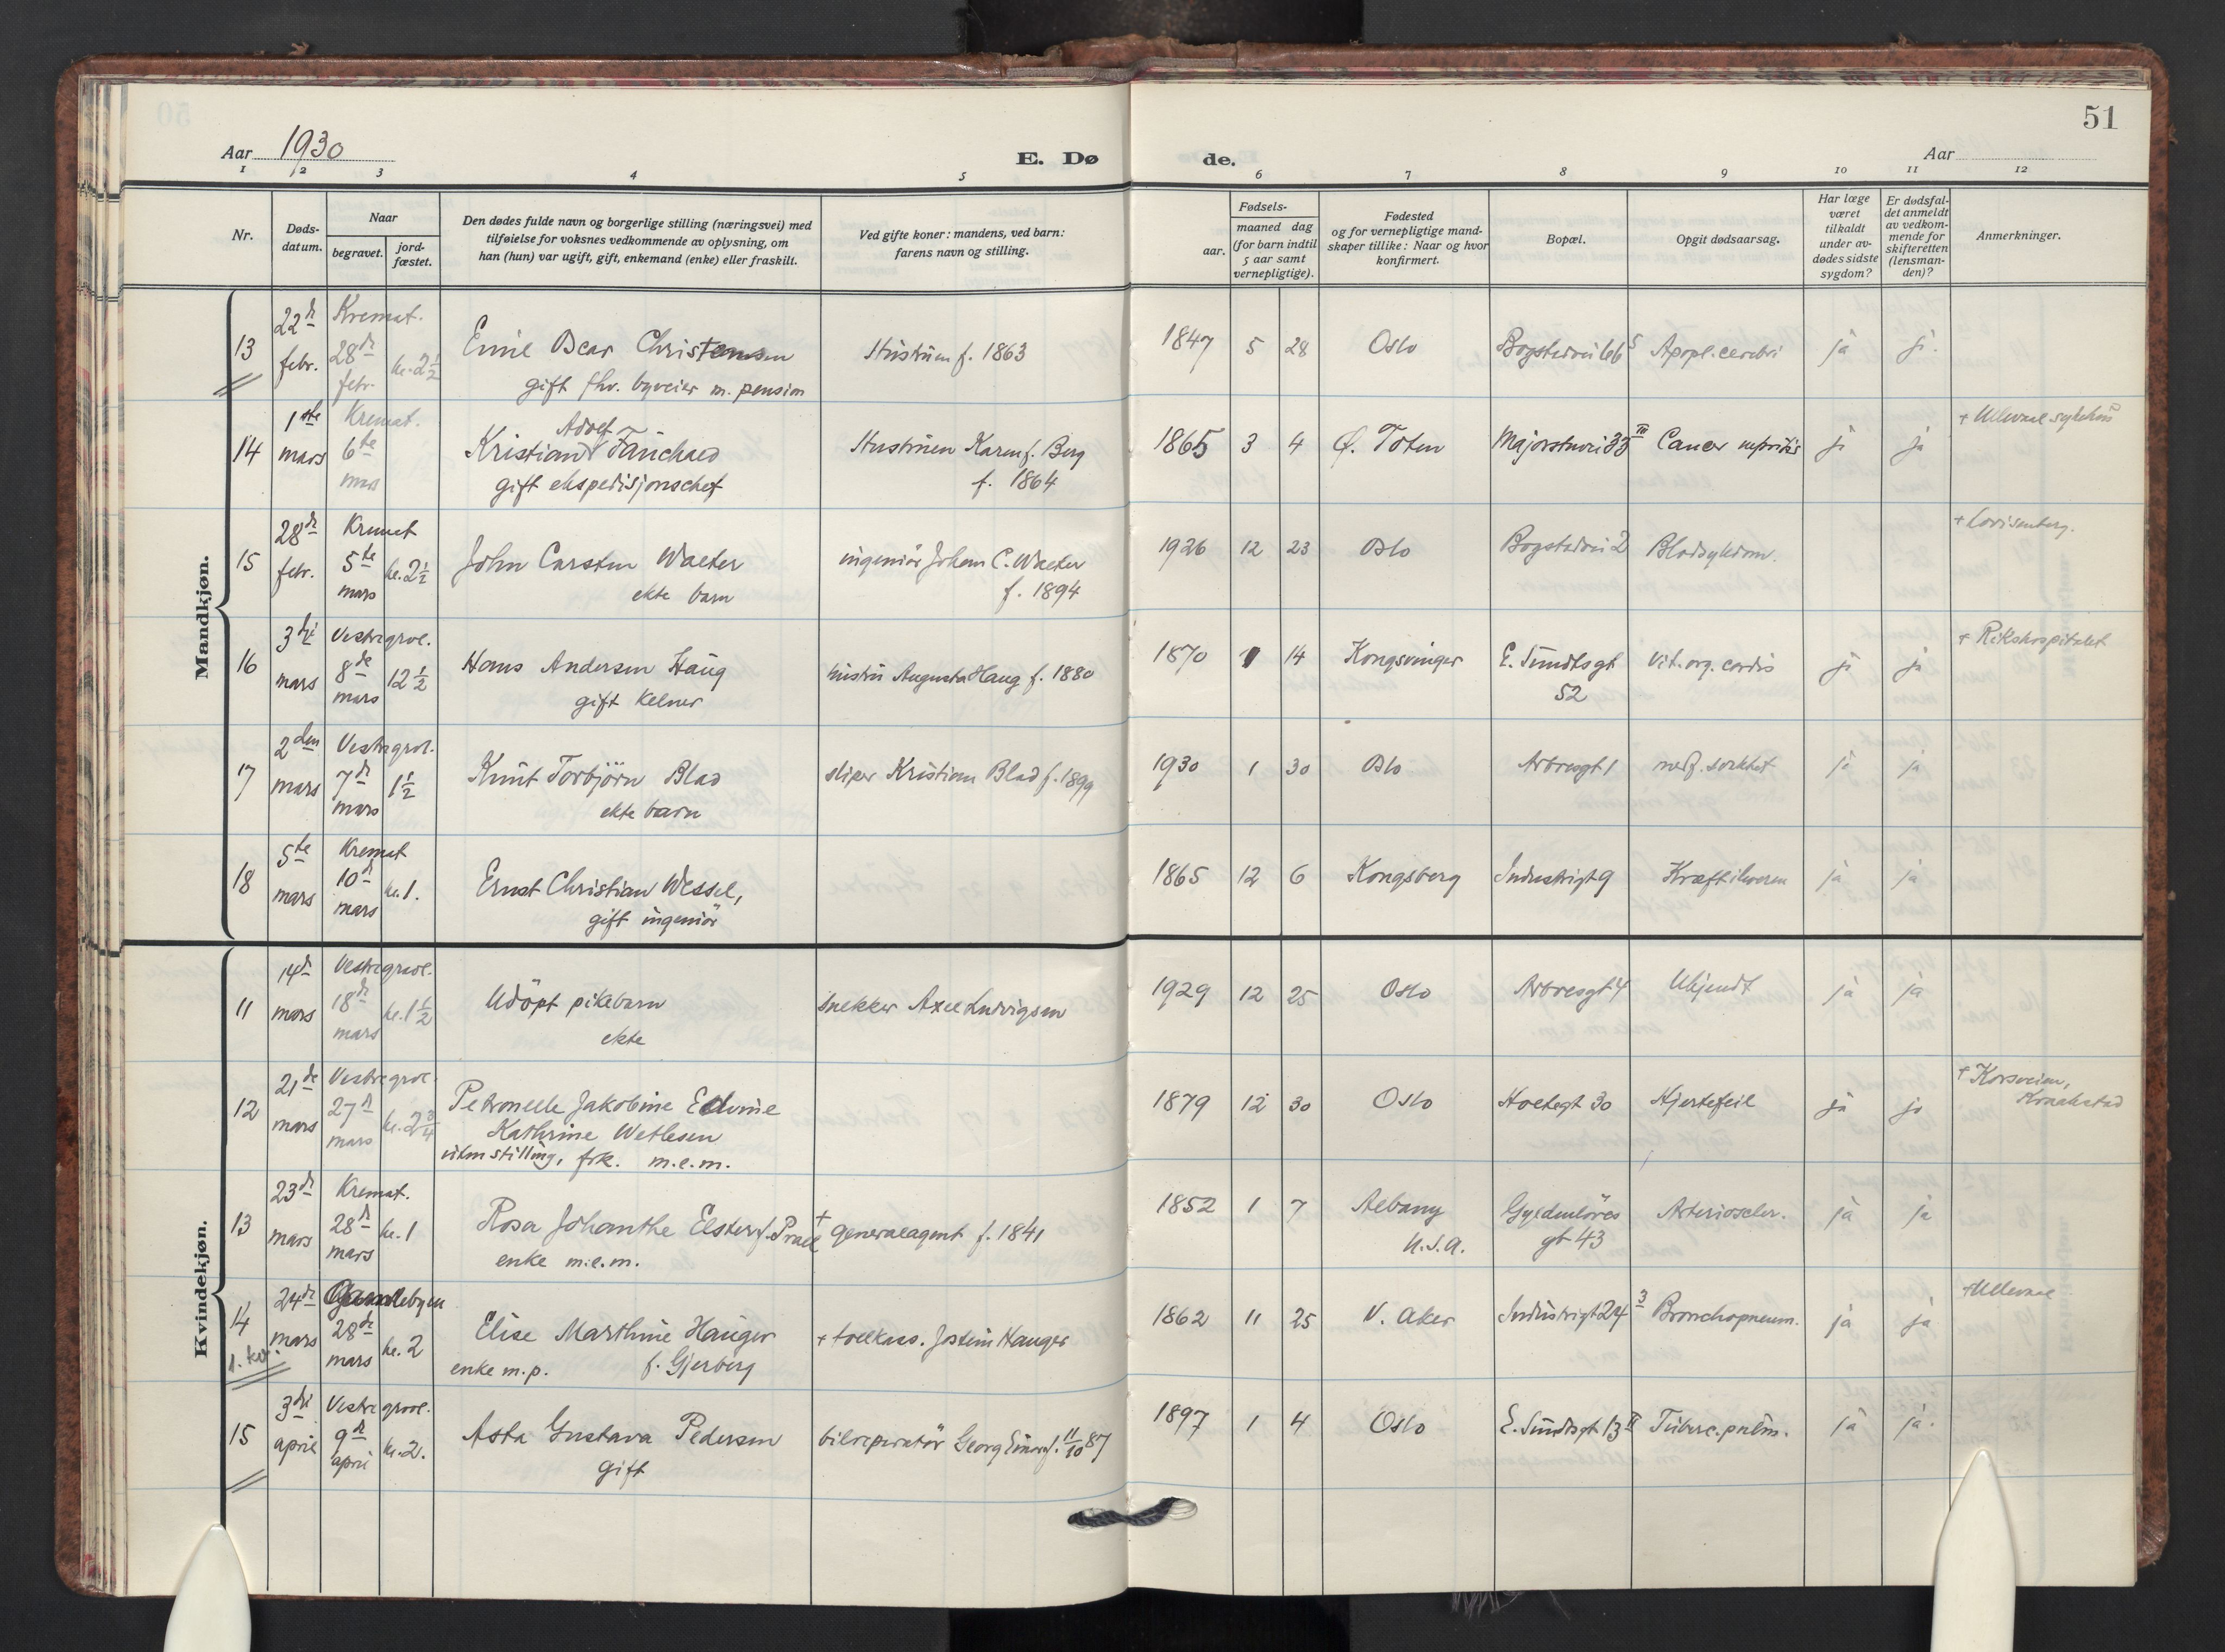 51
Aar 1930
E. Dø
de.
Aar
1 2 3 4 5 6 7 8 9 10 11 12
Nr.
Døds-
datum.
Naar
begravet.
jord-
fæstet.
Den dødes fulde navn og borgerlige stilling (næringsvei) med
tilføielse for voksnes vedkommende av oplysning, om
han (hun) var ugift, gift, enkemand (enke) eller fraskilt.
Ved gifte koner: mandens, ved barn:
farens navn og stilling.
Fødsels-
aar.
maaned dag
(for barn indtil
5 aar samt
vernepligtige).
Fødested
og for vernepligtige mand-
skaper tillike: Naar og hvor
konfirmert.
Bopæl.
Opgit dødsaarsag.
Har læge
været
tilkaldt
under av-
dødes sidste
sygdom?
Er dødsfal-
det anmeldt
av vedkom-
mende for
skifteretten
(lensman-
den)?
Anmerkninger.
Mandkjøn.
13 22de febr. Kremat. 28de febr. kl. 2 1/2
Emil Oscar Christensen
gift fhv. byveier m. pension
Hustru f. 1863
1847 5 28 Oslo Bogstadvei 66 5 Apopl. cerebri ja ja
14 1ste mars Kremat. 6te mars
Adolf
Kristian Fauchald
gift ekspedisjonschef
Hustruen Karen f. Berg
f. 1864
1865 3 4 Ø. Toten Majorstuvei 33 III Cancer ja ja
+ Ullevaal sykehus
15 28de febr. Kremat 5te mars kl. 2 1/2
John Carsten Walter
ekte barn
ingeniör Johan C. Walter
f. 1894
1926 12 23 Oslo Bogstadvei 2 Blodsykdom.
+ Lovisenberg.
16 3dje mars Vestre grvl. 8de mars 12 1/2
Hans Andersen Haug
gift kelner
hustru Augusta Haug f. 1880
1870 1 14 Kongsvinger E. Sundtsgt
52
Vit. org. cordis ja ja
+ Rikshospitalet
17 2den mars Vestre grvl. 7de mars 1 1/2
Knut Torbjörn Blad
ekte barn
sliper Kristian Blad f. 1899
1930 1 30 Oslo Arbosgt 1 medf. svakhet ja ja
18 5te mars Kremat 10de mars kl. 1.
Ernst Christian Wessel,
gift ingeniör
1865 12 6 Kongsberg Industrigt 9 Kræft i leveren ja ja
Kvindekjøn.
11 14de mars Vestre gravl. 18de mars kl. 1 1/2
Udöpt pikebarn
ekte
snekker Axel Ludvigsen
1929 12 25 Oslo Arbosgt 4 Ukjendt ja ja
12 21de mars Vestre gravl. 27de mars kl. 2 3/4
Petronelle Jakobine Edvine
Kathrine Wetlesen
uten stilling, frk. m.e.m.
1879 12 30 Oslo Holtegt 30 Hjertefeil ja ja
+ Korsveien,
Kraakstad
13 23de mars Kremat. 28de mars kl. 1
Rosa Johanthe Elster f. Prall
enke m.e.m.
+ generalagent f. 1841
1852 1 7 Albany
U.S.A.
Gyldenlöves
gt 43
Arterioscler. ja ja
14 24de mars Gamlebyen 28de mars kl. 2
1. kv.
Elise Marthine Hauger
enke m.p. f. Gjerberg
+ tollkass. Jostein Hauger
1862 11 25 V. Aker Industrigt 24 3 Bronchopneum. ja ja
+ Ullevaal
15 3dje april Vestre gravl. 9de april kl. 2.
Asta Gustava Pedersen
gift
bilreparatör Georg Einar f. 11/10 87
1897 1 4 Oslo E. Sundtsgt 13 II Tuberc. pulm. ja ja.